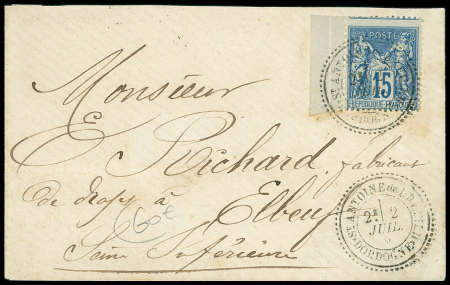 POSTE
15
REPUBLIQUE FRANC
ST ANTOINE
DORDOGNE
Monsieur
E Richard fabricant
de drap à
Elbeuf
Seine Inférieure
60€
ST ANTOINE de
2E 2
JUIL.
DORDOGNE